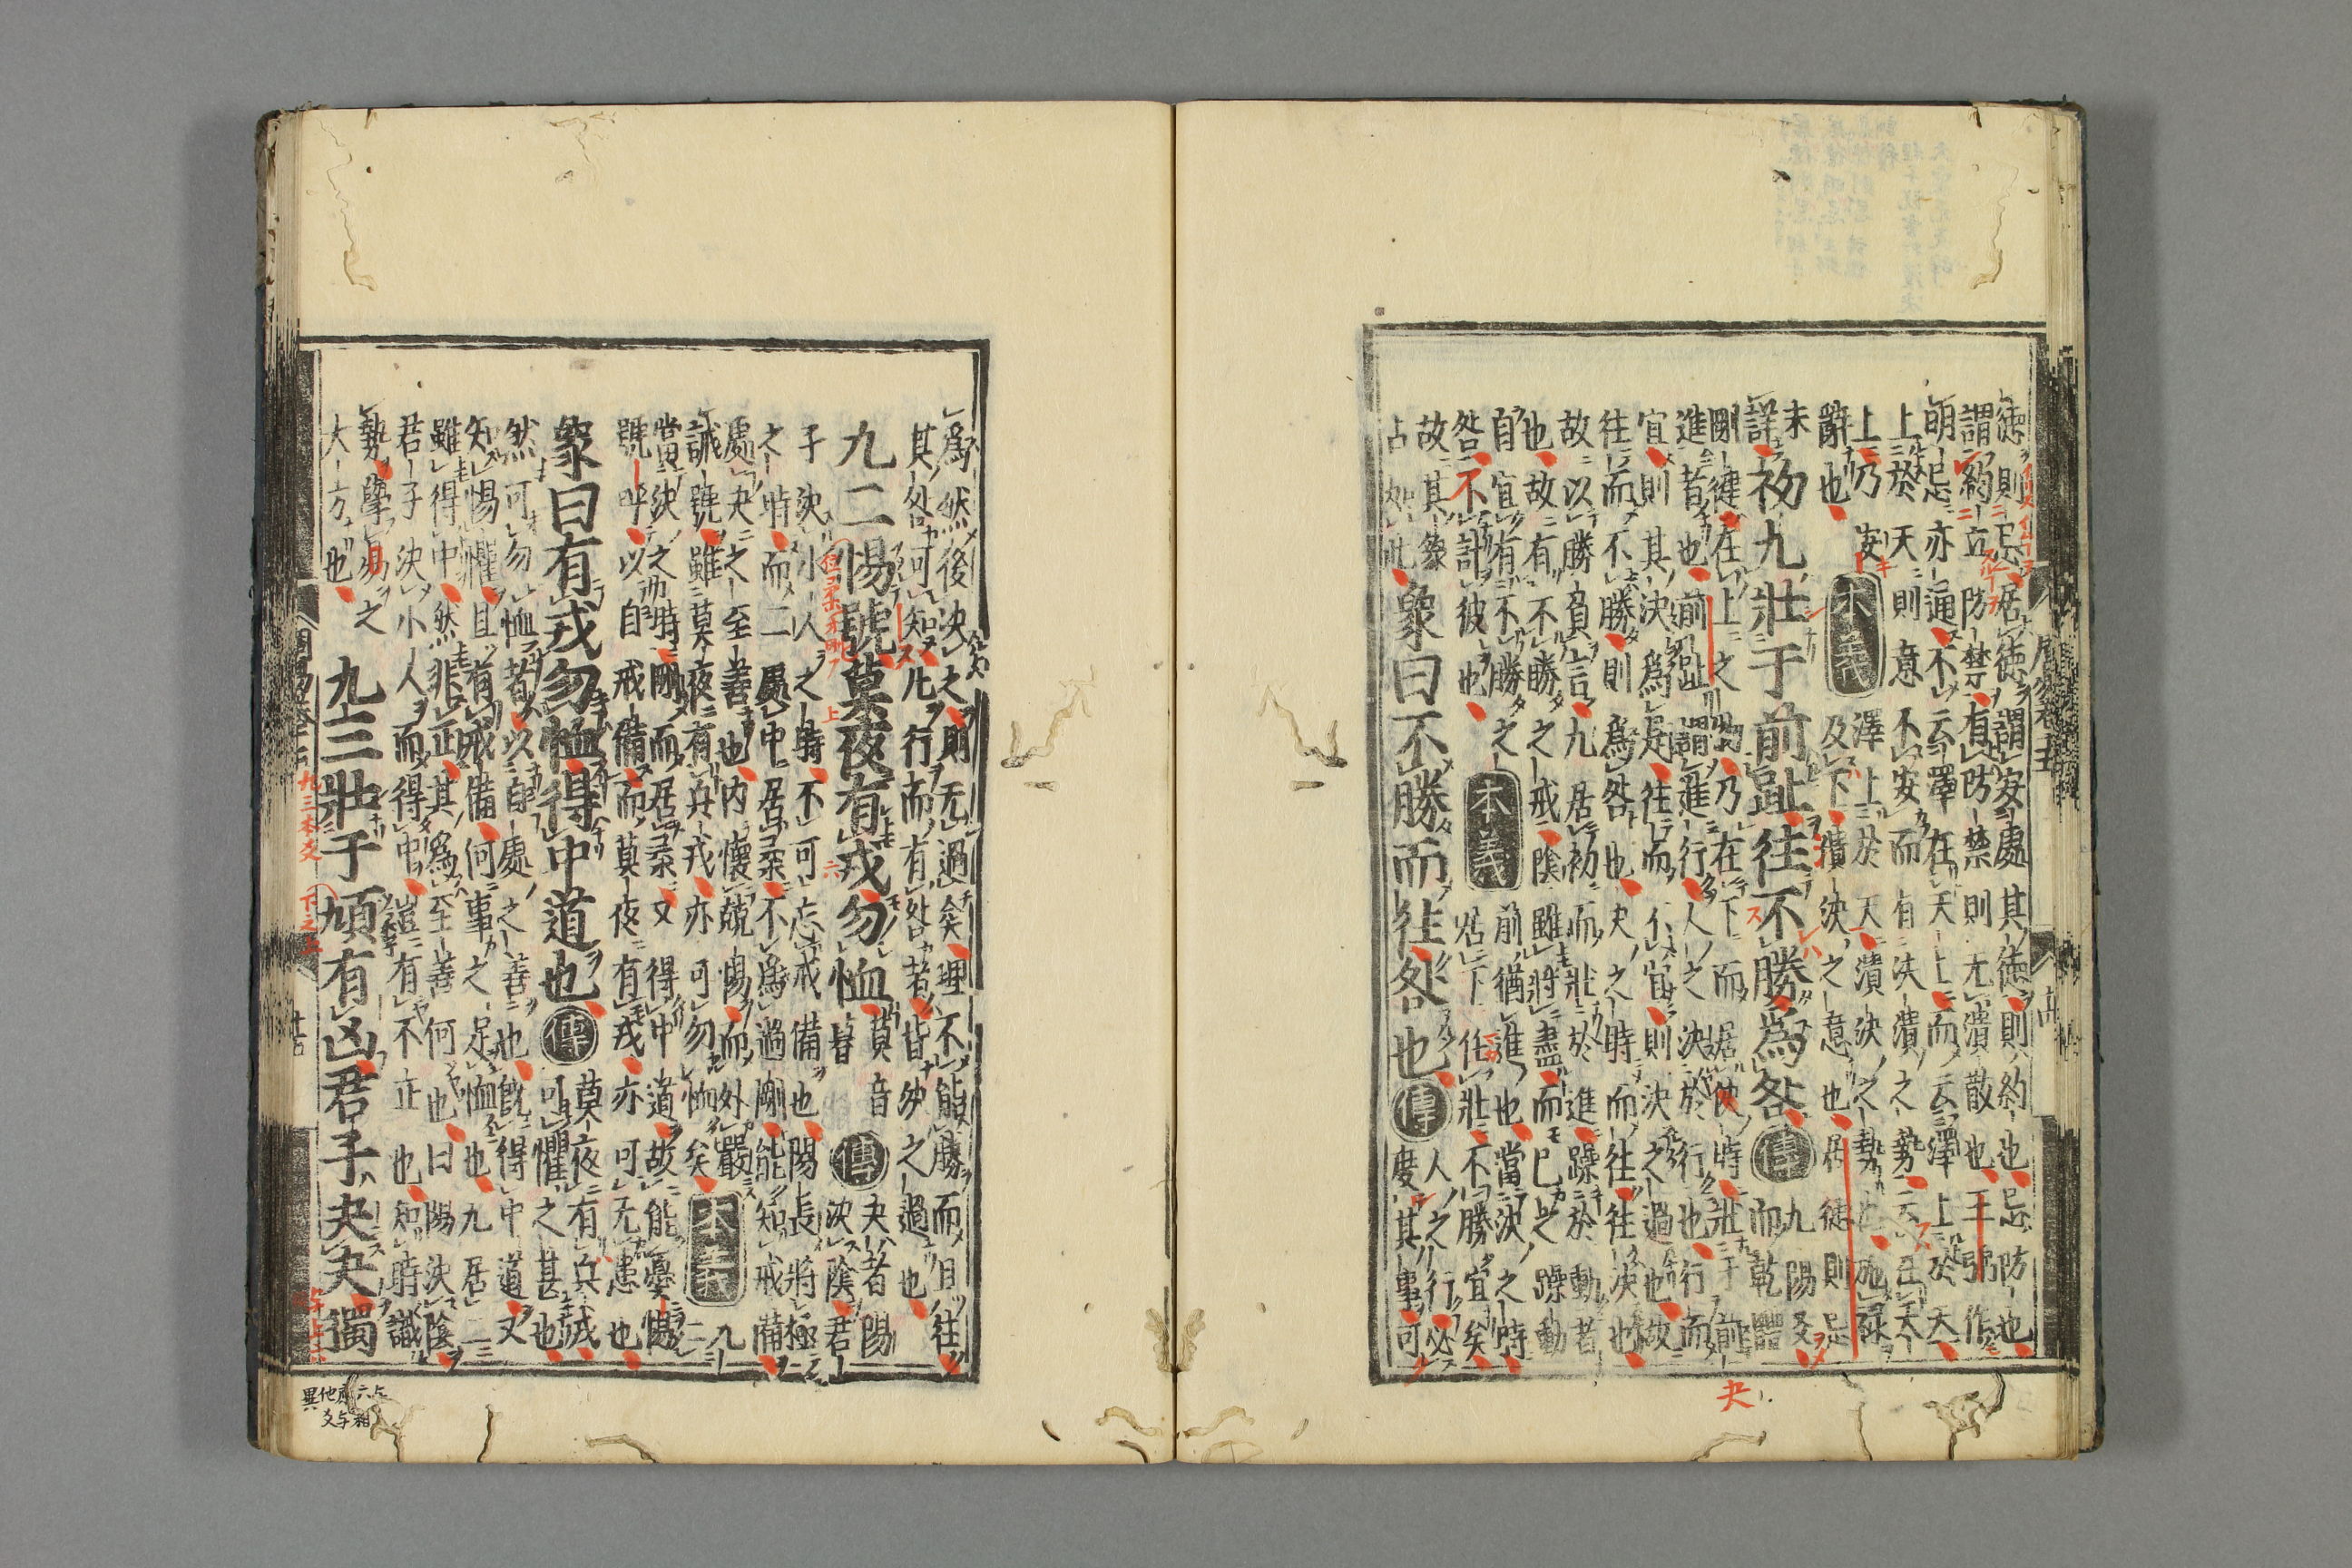 徳則忌居徳謂安處其徳則約也忌防也
謂約立防禁有防禁則无潰散也王弼作
明忌亦通不云澤在天上而云澤上於天
上於天則意不安而有決潰之勢云在天
上乃安
辭也
本義
澤上於天潰決之勢也施禄
及下潰決之意也居徳則忌
未
詳
初九壯于前趾往不勝爲咎
傳
九陽爻
而乾體
剛健在上之物乃在下而居決時壯于前
進者也前趾謂進行人之決於行也行而
宜則其決爲是往而不宜則決之過也故
往而不勝則爲咎也夬之時而往往決也
故以勝負言九居初而壯於進躁於動者
也故有不勝之戒陰雖將盡而已之躁動
自宜有不勝之
咎不計彼也
本義
前猶進也當決之時
居下任壯不勝宜矣
故其象
占如此
象曰不勝而往咎也
傳
人之行必
度其事可
夬
爲然後決之則无過矣理不能勝而且往
其咎可知凡行而有咎者皆決之過也
九二惕號莫夜有戎勿恤
莫音
暮
傳
夬者陽
決陰君
子決小人之時不可忘戒備也陽長將極
之時而二處中居柔不爲過剛能知戒備
處夬之至善也内懷兢惕而外嚴
誡號雖莫夜有兵戎亦可勿恤矣
本義
九二
當決之時剛而居柔又得中道故能憂惕
號呼以自戒備而莫夜有戎亦可无患也
象曰有戎勿恤得中道也
傳
莫夜有兵戎
可懼之甚也
然可勿恤者以自處之善也既得中道又
知惕懼且有戒備何事之足恤也九居二
雖得中然非正其爲至善何也曰陽決陰
君子決小人而得中豈有不正也知時識
勢學易之
大方也
九三壯于頄有凶君子夬夬獨